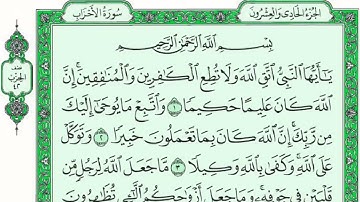 الجزء الحادى والعشرون
سورة الأحزاب
بِسْمِ اللَّهِ الرَّحْمَٰنِ الرَّحِيمِ
يَٰٓأَيُّهَا ٱلنَّبِىُّ ٱتَّقِ ٱللَّهَ وَلَا تُطِعِ ٱلْكَٰفِرِينَ وَٱلْمُنَٰفِقِينَ إِنَّ
ٱللَّهَ كَانَ عَلِيمًا حَكِيمًا ١ وَٱتَّبِعْ مَا يُوحَىٰٓ إِلَيْكَ
مِن رَّبِّكَ إِنَّ ٱللَّهَ كَانَ بِمَا تَعْمَلُونَ خَبِيرًا ٢ وَتَوَكَّلْ
عَلَى ٱللَّهِ وَكَفَىٰ بِٱللَّهِ وَكِيلًا ٣ مَّا جَعَلَ ٱللَّهُ لِرَجُلٍ مِّن
قَلْبَيْنِ فِى جَوْفِهِۦ وَمَا جَعَلَ أَزْوَٰجَكُمُ ٱلَّٰٓـِٔى تُظَٰهِرُونَ